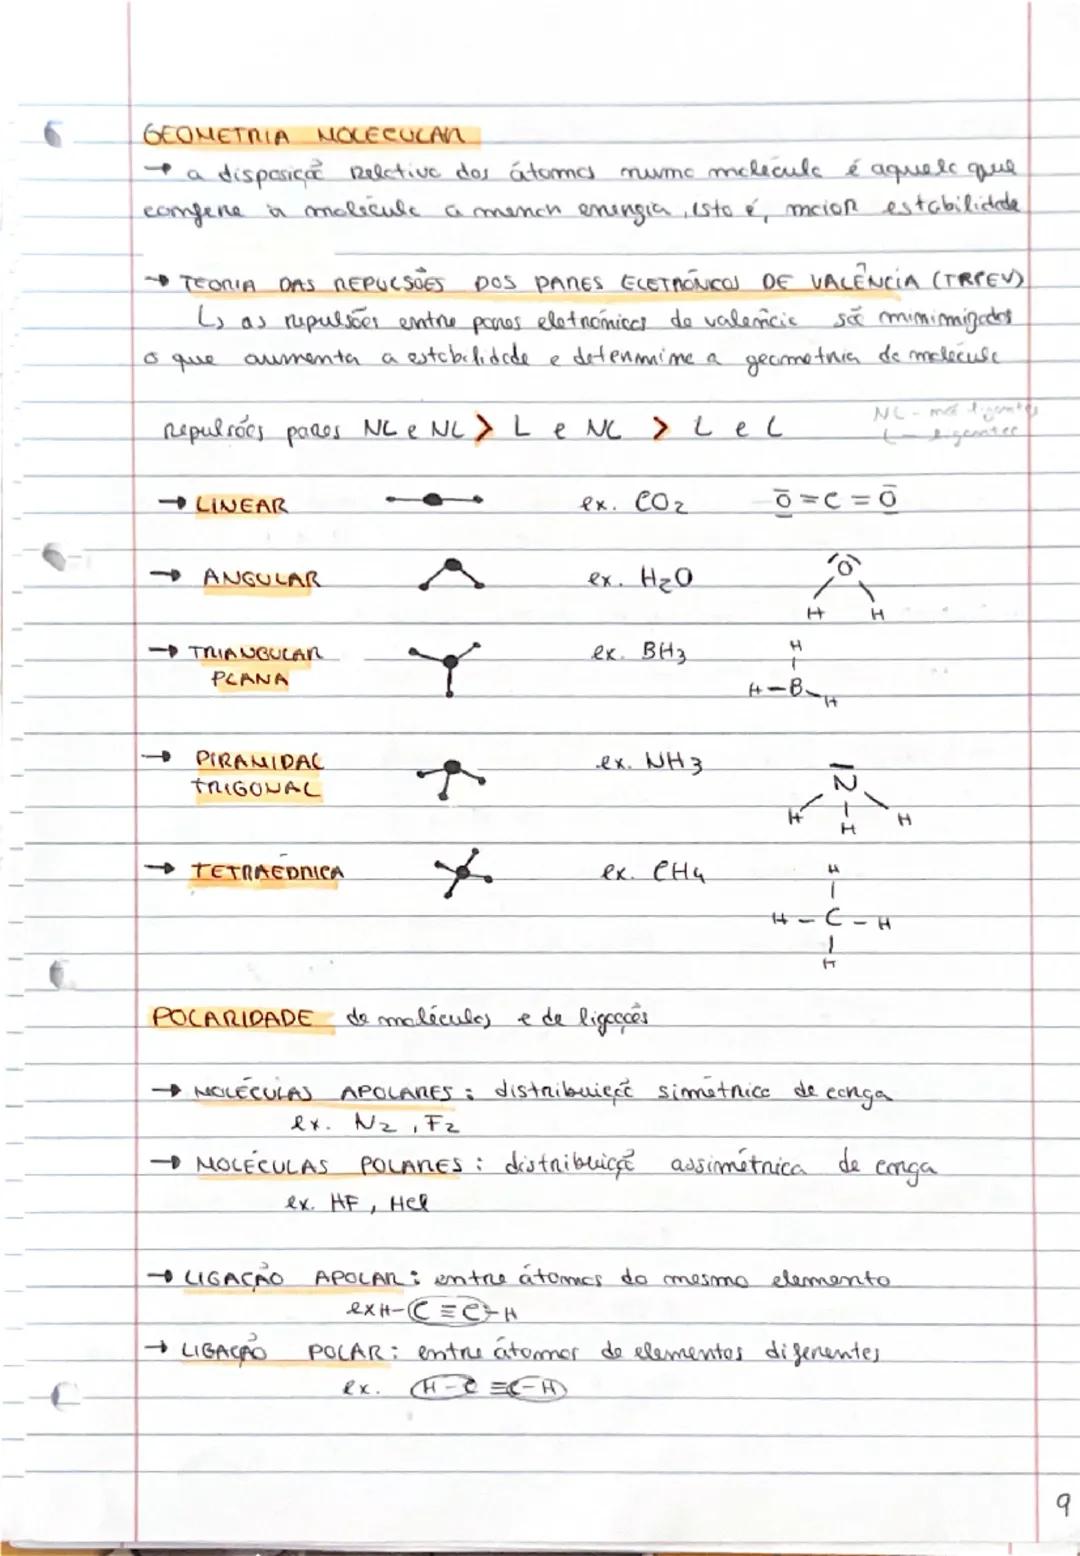 GEOMETRIA MOLECULAR
→ a disposição relativa dos átomos numa molécula é aquela que
confere à molécula a menor energia, isto é, maior estabilidade
→ TEORIA DAS REPULSÕES DOS PARES ELETRÓNICOS DE VALÊNCIA (TRPEV)
↳ as repulsões entre pares eletrónicos de valência são minimizados
o que aumenta a estabilidade e determina a geometria da molécula
NL - não ligantes
Repulsões pares NL e NL > L e NL > L e L
L - ligantes
→ LINEAR ex. CO2 O = C = O
→ ANGULAR ex. H2O O
H H
→ TRIANGULAR ex. BH3 H
PLANA H - B - H
→ PIRAMIDAL ex. NH3
TRIGONAL N
H H H
→ TETRAÉDRICA ex. CH4 H
H - C - H
H
POLARIDADE de moléculas e de ligações
→ MOLÉCULAS APOLARES: distribuição simétrica de carga
ex. N2, F2
→ MOLÉCULAS POLARES: distribuição assimétrica de carga
ex. HF, HCl
→ LIGAÇÃO APOLAR: entre átomos do mesmo elemento
ex H-C≡C-H
→ LIGAÇÃO POLAR: entre átomos de elementos diferentes
ex. H-C≡C-H
9